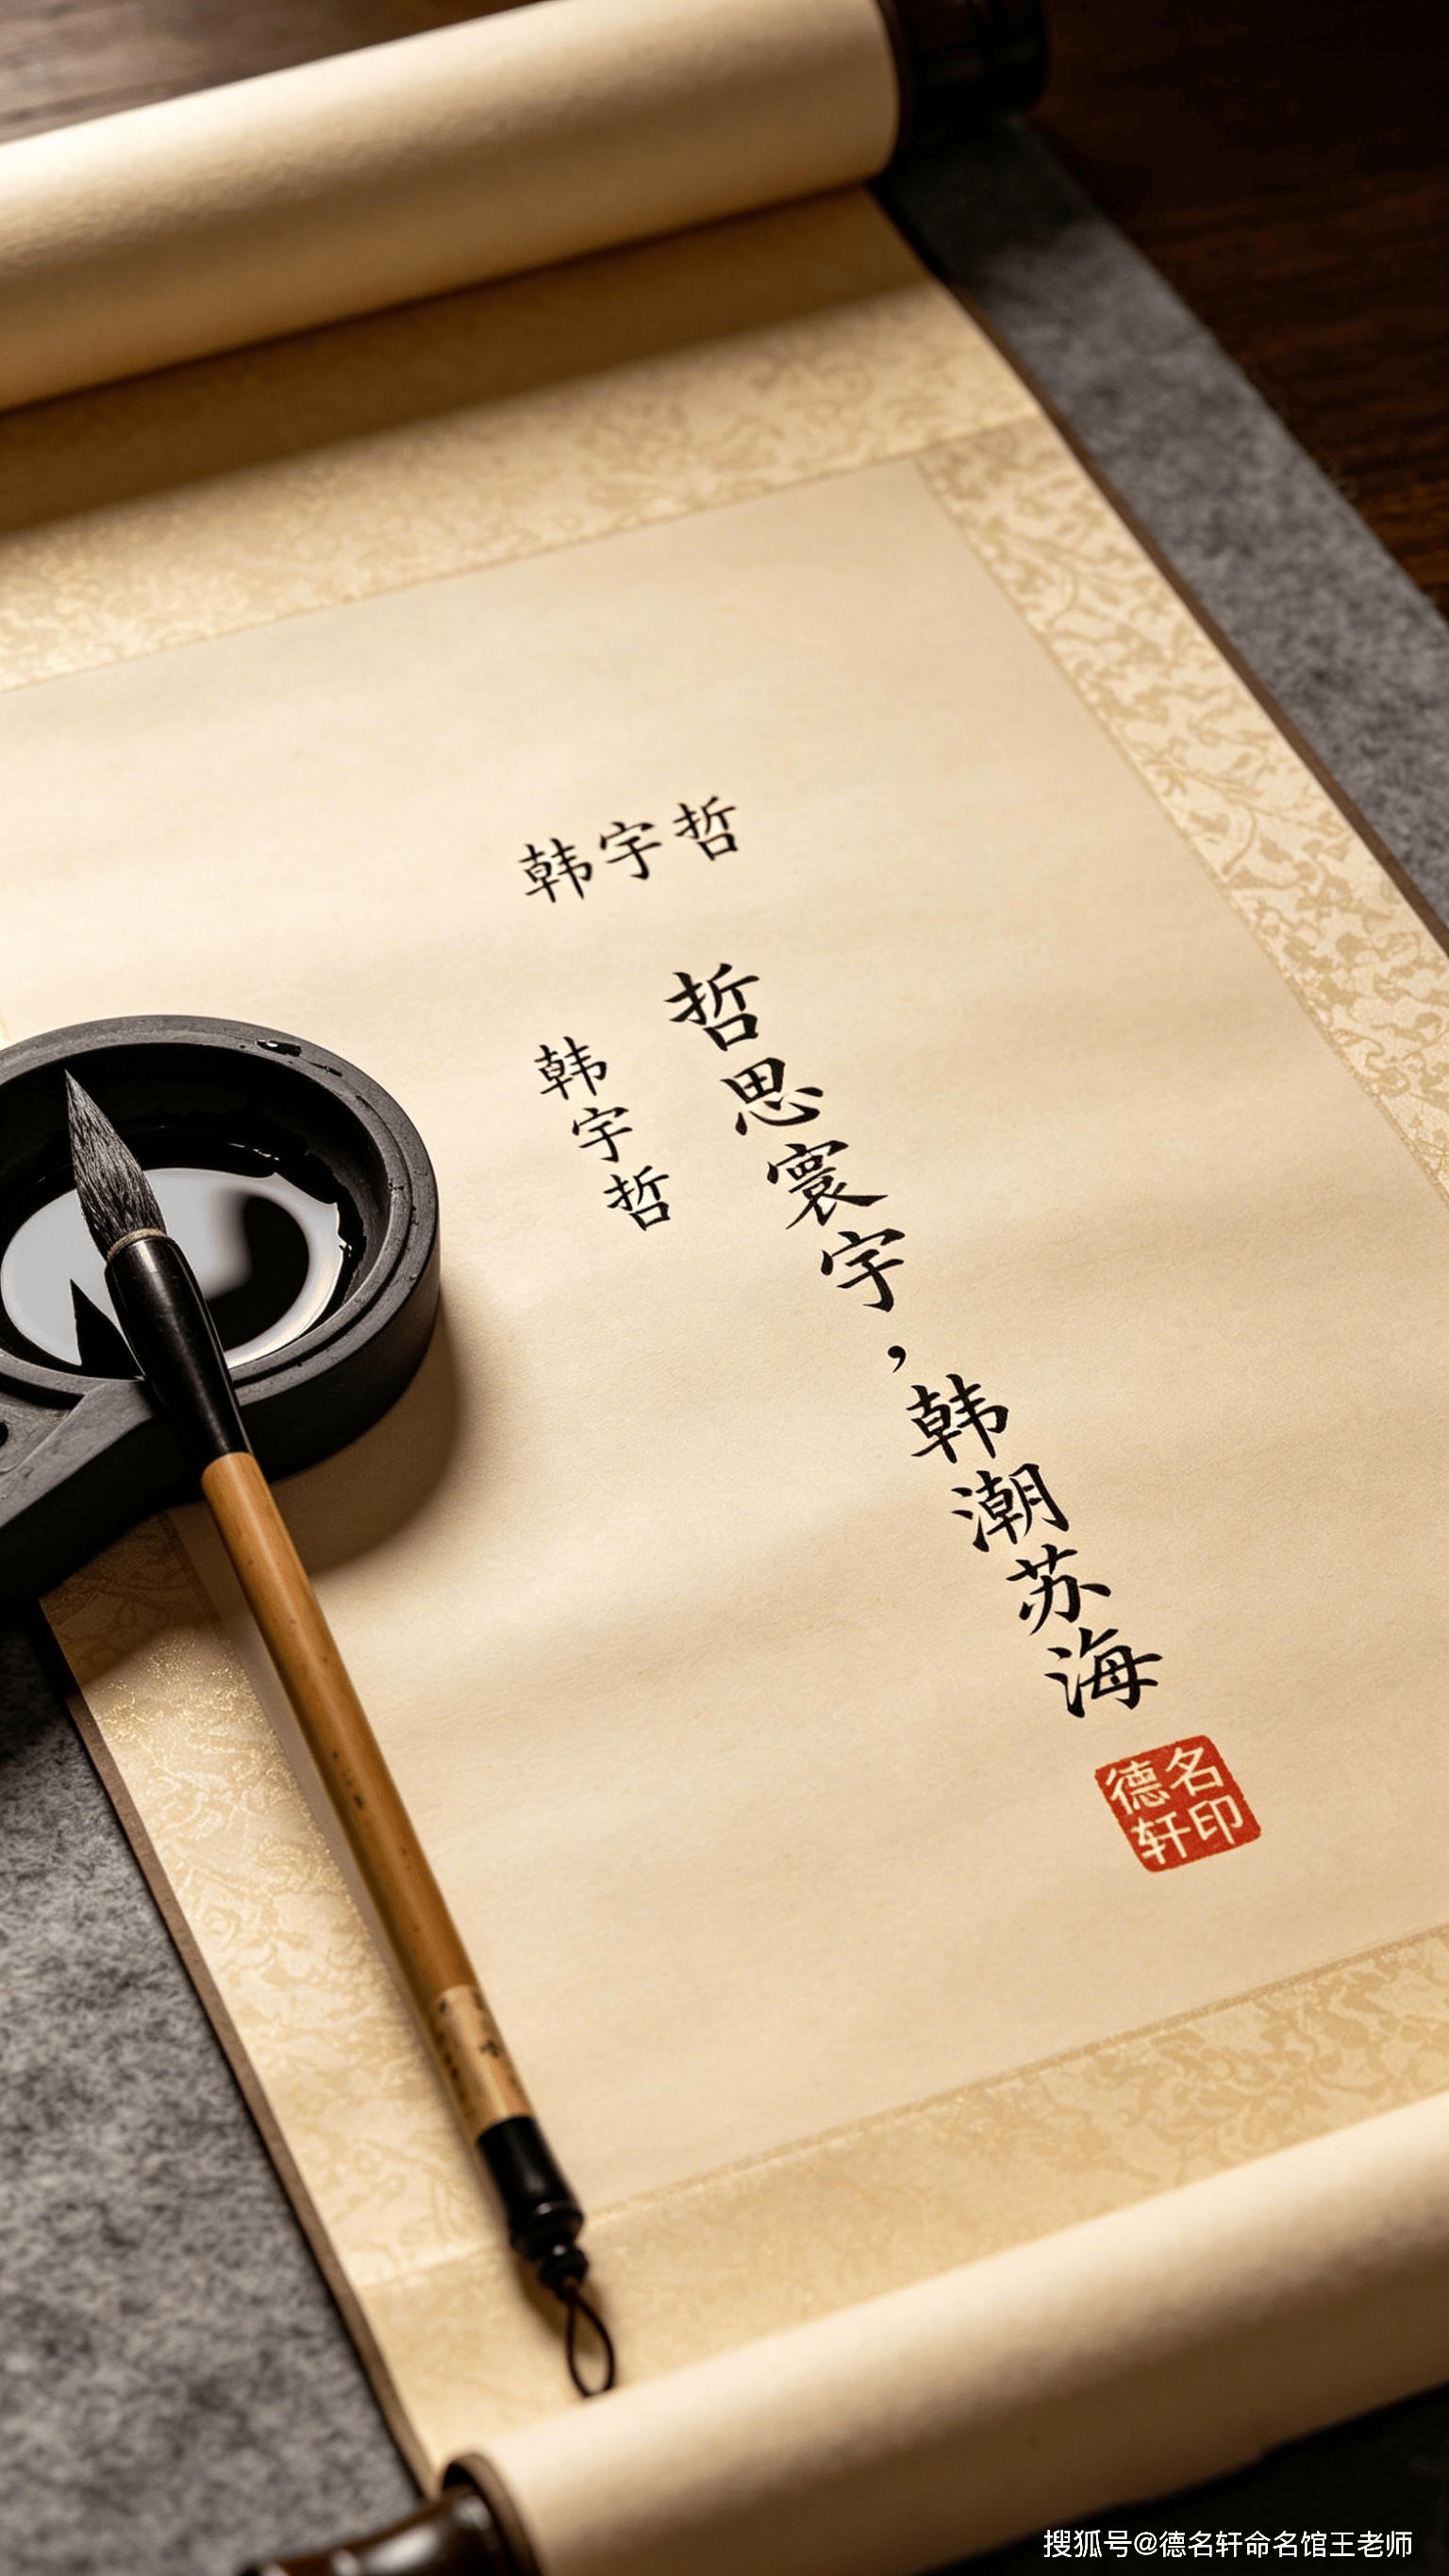 韩宇哲
哲思寰宇，韩潮苏海
韩宇哲
德名
轩印
搜狐号@德名轩命名馆王老师